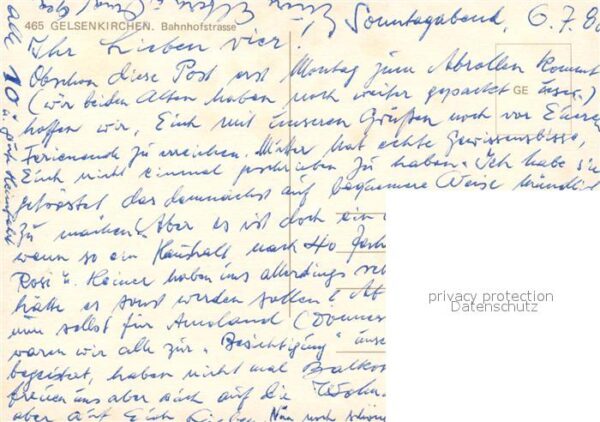 465 GELSENKIRCHEN. Bahnhofstrasse
Sonntagabend, 6.7.80
Ihr Lieben vier!
Obschon diese Post erst Montag zum Abrollen kommt
(wir beiden Alten haben noch weiter gepackt
GE
hoffen wir, Euch mit unseren Grüßen noch vor Eurem
Ferienende zu erreichen. Mutter hat echte Gewissensbisse,
Euch nicht einmal geschrieben zu haben. Ich habe sie
getröstet das demnächst auf bequemere Weise mündlich
zu machen! Aber es ist doch ein
wenn so ein Haushalt nach 40 Jahr
Rosi u. Reiner haben uns allerdings
hätte es sonst werden sollen? Ab
nun selbst für Amsland
waren wir alle zur "Besichtigung"
begeistert, haben nicht mal Balkon
freuen uns aber auch auf die
aber auf Euch Lieben. Nun noch schöne
alle 10
u. gute Heimfahrt
privacy protection
Datenschutz